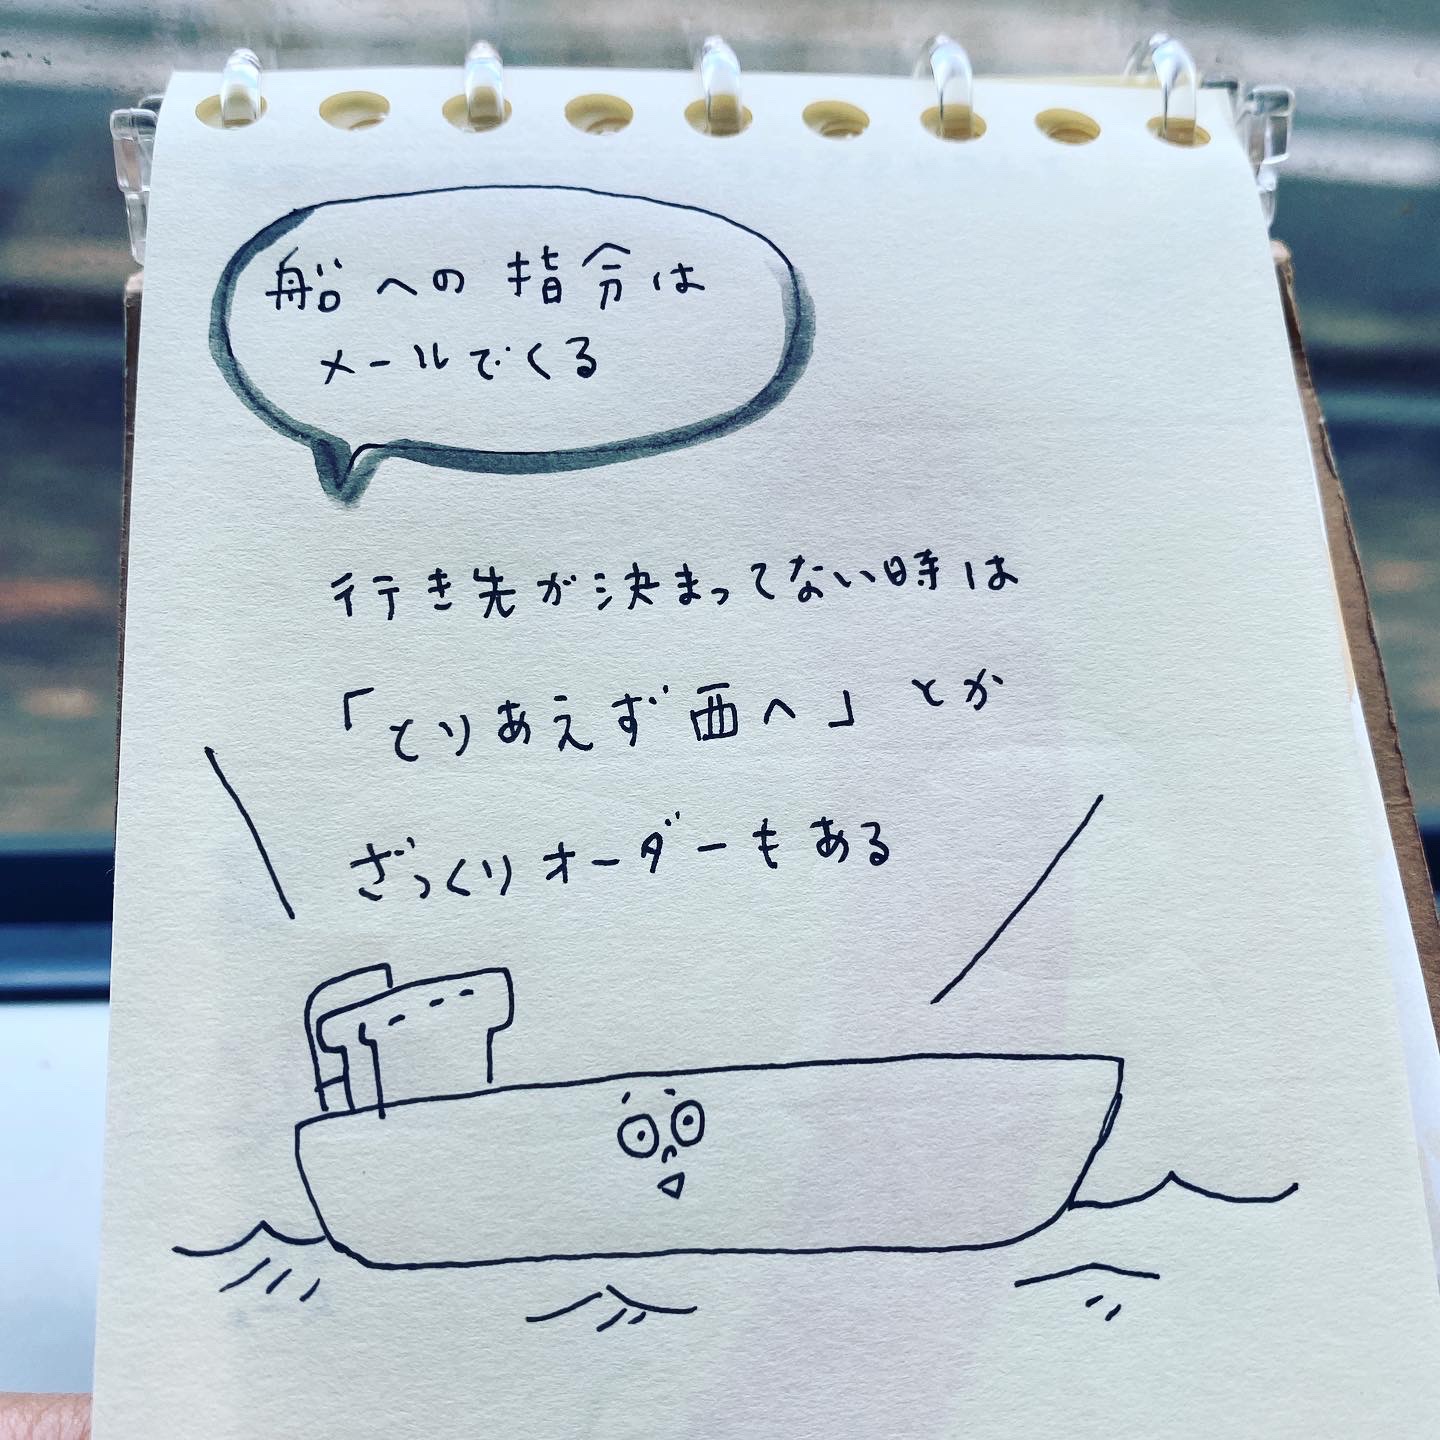 船への指令は
メールでくる
行き先が決まってない時は
「とりあえず西へ」とか
ざっくりオーダーもある